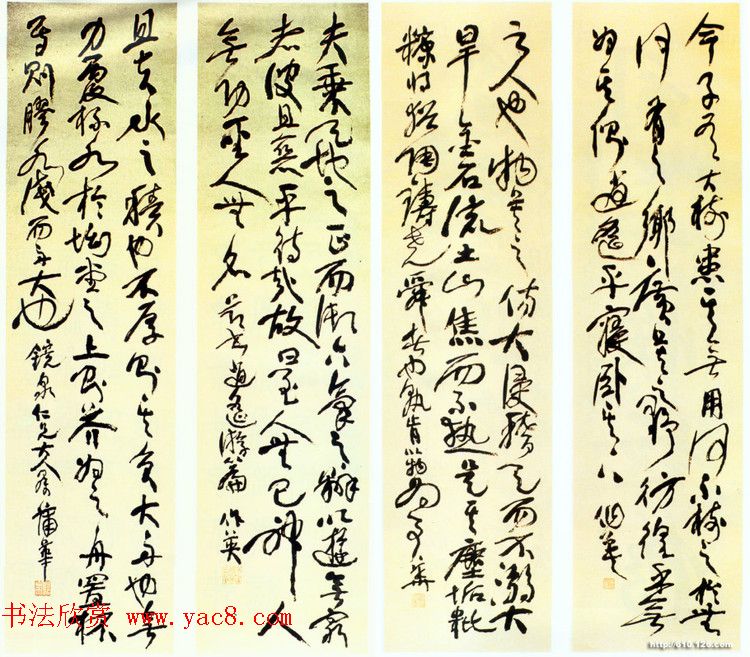 今子有大樹患其無用何不樹之於無
何有之鄉廣莫之野彷徨乎無
為其側逍遙乎寢臥其下
之人也物莫之傷大浸稽天而不溺大
旱金石流土山焦而不熱是其塵垢粃
糠將猶陶鑄堯舜者也孰肯以物為事
夫乘天地之正而御六氣之辯以遊無窮
者彼且惡乎待哉故曰至人無己神人
無功聖人無名 逍遙游篇 作英
且夫水之積也不厚則其負大舟也無
力覆杯水於坳堂之上則芥為之舟置杯
焉則膠水淺而舟大也 鏡泉仁兄大人屬 蒲華
书法欣赏 www.yac8.com
http://610.126.com